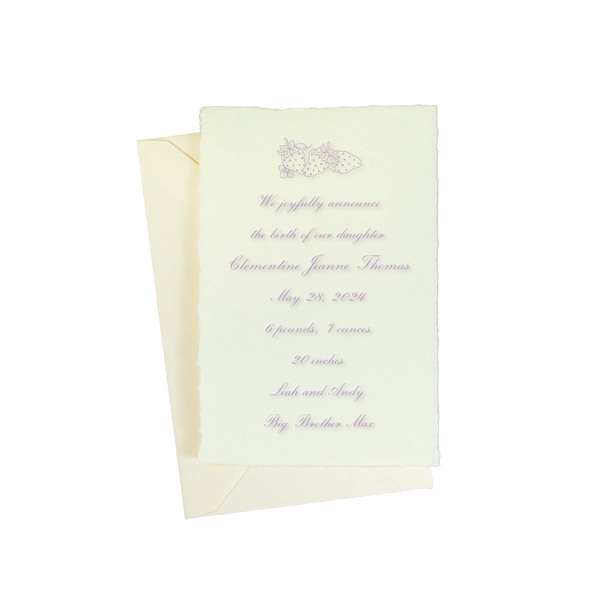 We joyfully announce
the birth of our daughter
Clementine Jeanne Thomas
May 28, 2024
6 pounds, 7 ounces
20 inches
Leah and Andy
Big Brother Max